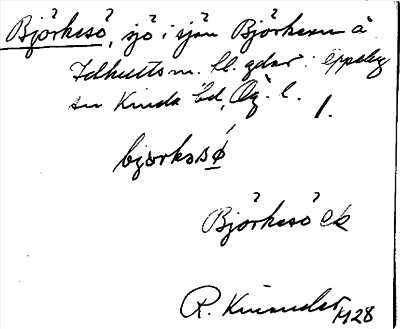 Björkesö, sjö i sjön Björkern å
Idhults m. fl. gdar: Oppeby
sn Kinda hd, Ög. l. 1.
björkəsø
Björkesö ek
R. Kinander 1928